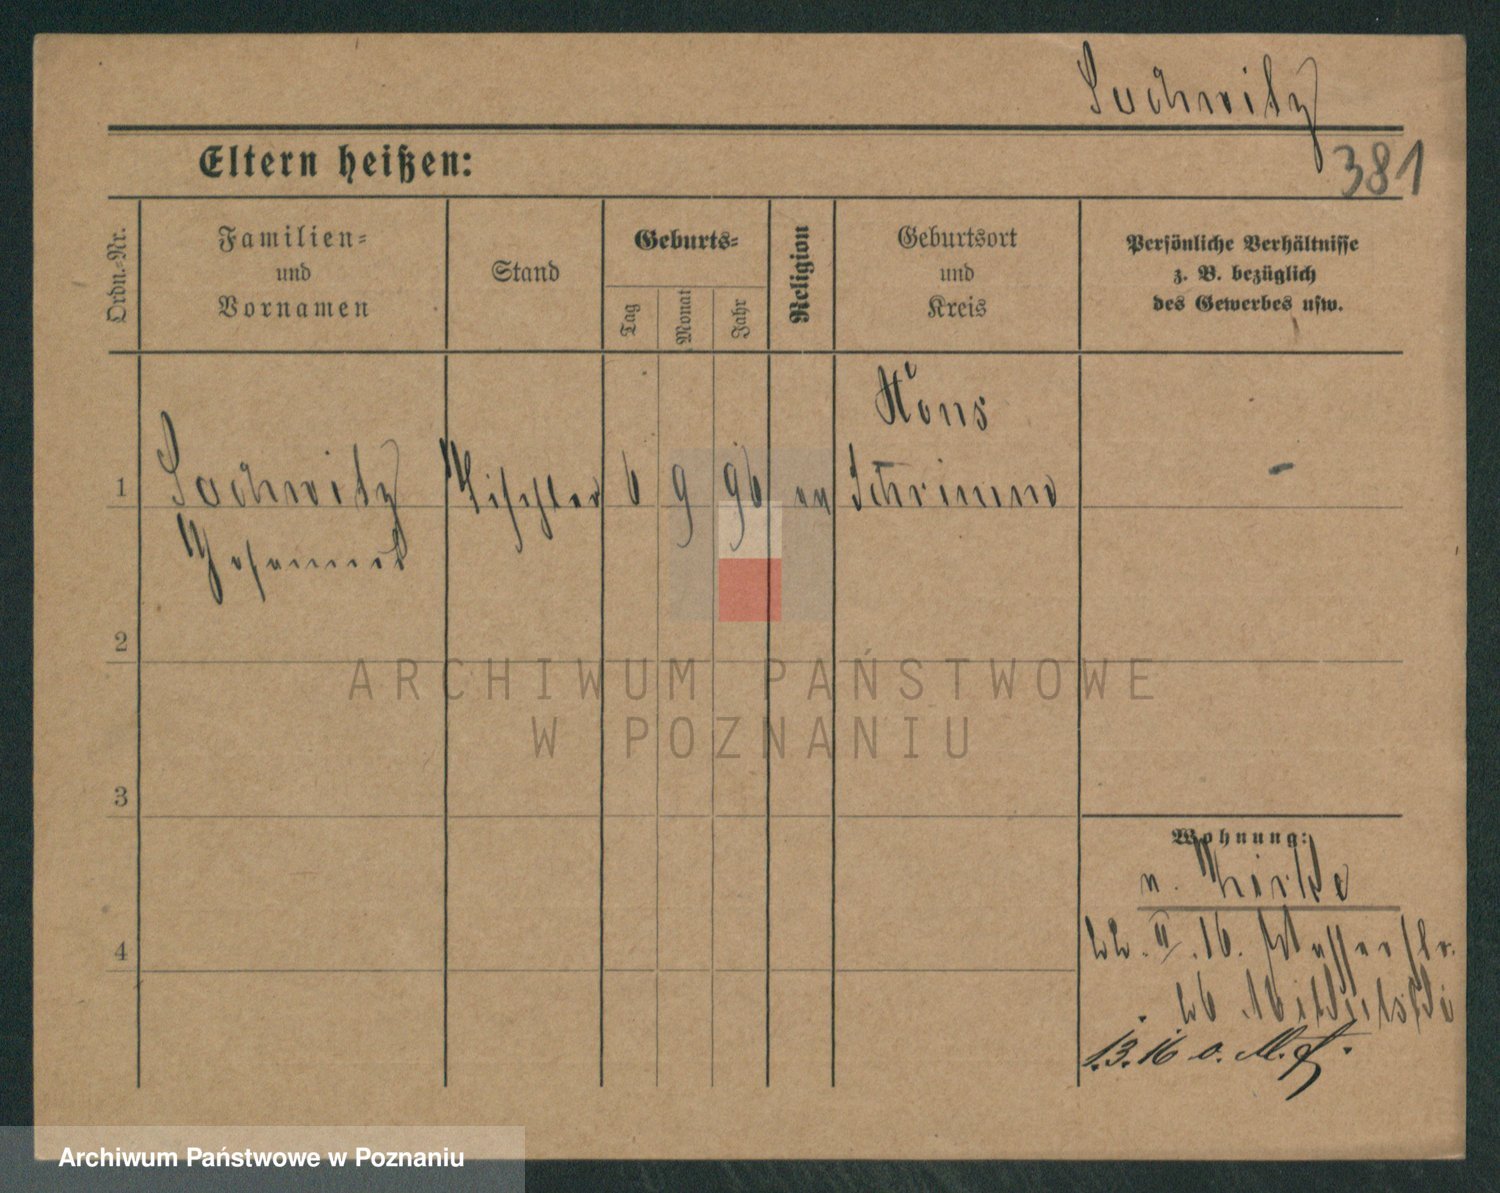 Sochwitz
Eltern heißen:
381
Ordn.-Nr.
Familien-
und
Vornamen
Stand
Geburts-
Tag
Monat
Jahr
Religion
Geburtsort
und
Kreis
Persönliche Verhältnisse
z. B. bezüglich
des Gewerbes usw.
1
Sochwitz
Tischler
6
9
96
Xions
Schrimm
-
2
3
4
Wohnung:
n.
22. II. 16. Wasserstr.
26
1.3.16 o. M.
ARCHIWUM PAŃSTWOWE
W POZNANIU
Archiwum Państwowe w Poznaniu